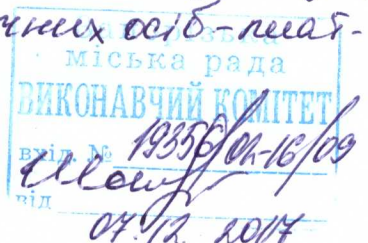 чних осіб-плат-
міська рада
ВИКОНАВЧИЙ КОМІТЕТ
вхід. № 19356/01-16/09
від
07.12.2017